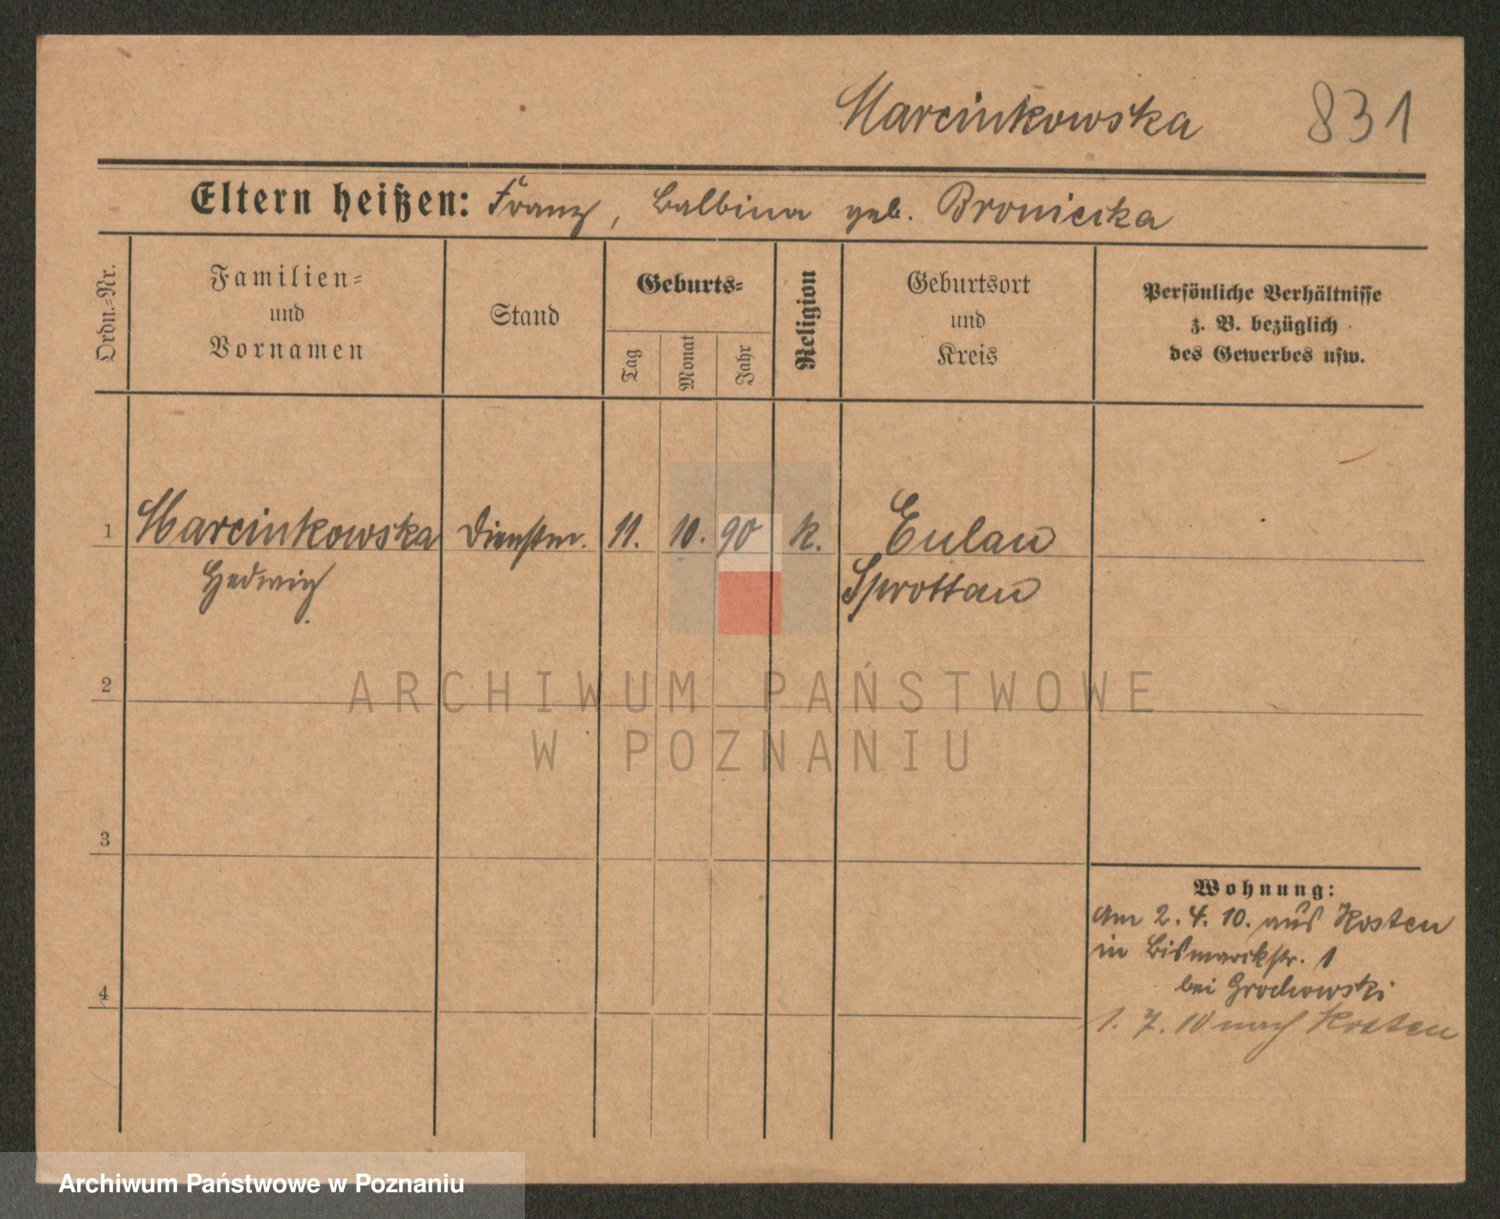 Marcinkowska 831
Eltern heißen: Franz, Balbina geb. Broniecka
Ordn.-Nr.
Familien-
und
Vornamen
Stand
Geburts-
Tag
Monat
Jahr
Religion
Geburtsort
und
Kreis
Persönliche Verhältnisse
z. B. bezüglich
des Gewerbes usw.
1 Marcinkowska Dienstm. 11. 10. 90 k. Eulau
Hedwig Sprottau
2
ARCHIWUM PAŃSTWOWE
W POZNANIU
3
Wohnung:
Am 2. 4. 10. aus Kosten
in Bismarckstr. 1
bei Grochowski
4
1. 7. 10 nach Kosten
Archiwum Państwowe w Poznaniu